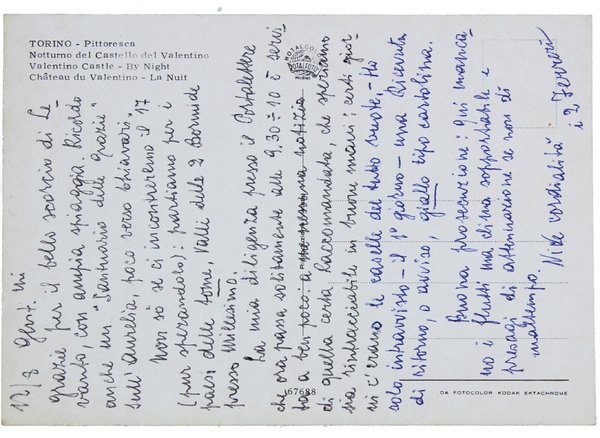 TORINO - Pittoresca
Notturno del Castello del Valentino
Valentino Castle - By Night
Château du Valentino - La Nuit
12/8 Gent.mi
grazie per il bello scorcio di Le-
vanto, con ampia spiaggia. Ricordo
anche un "Santuario delle Grazie"
sull'Aurelia, poco verso Chiavari.
Non so se ci incontreremo il 17
(pur sperandolo): partiamo per i
paesi delle tome, Valli delle 2 Bormide
presso Millesimo.
La mia diligenza presso il Portalettere
che ora passa solitamente alle 9.30÷10 è servi-
ta a ben poco a nessuna notizia
di quella certa Raccomandata, che speriamo
sia rintracciabile in buone mani: certi gior-
ni c'erano le caselle del tutto vuote. Ho
solo intravvisto - il 1° giorno - una Ricevuta
di ritorno, o avviso, giallo tipo cartolina.
Buona prosecuzione: qui manca-
no i flutti ma clima sopportabile e
presagi di attenuazione se non di
maltempo.
Vive cordialità
i 2 Ferreri
FOTALCOLOR
167688
DA FOTOCOLOR KODAK EKTACHROME